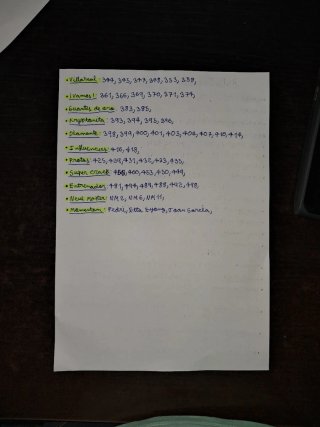 • Villarreal: 344, 345, 347, 348, 353, 358,
• ¡Vamos!: 361, 366, 369, 370, 371, 374,
• Guantes de oro: 383, 385,
• Kryptonita: 393, 394, 395, 396,
• Diamante: 398, 399, 400, 401, 403, 404, 407, 410, 414,
• Influencers: 416, 418,
• Protas: 425, 429, 431, 432, 433, 435,
• Super crack: 460, 453, 450, 449,
• Entrenador: 481, 484, 487, 488, 492, 498,
• New Master: NM 2, NM 6, NM 11,
• Momentum: Pedri, Etta Eyong, Joan García,